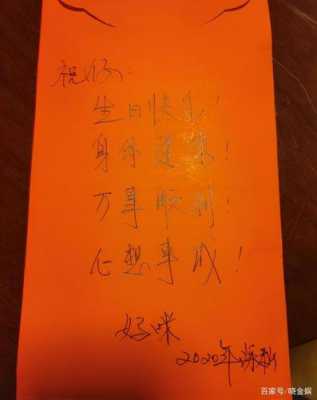 祝妈:
生日快乐!
身体健康!
万事顺利!
心想事成!
好咪
2020年深秋
百家号/晓金娱